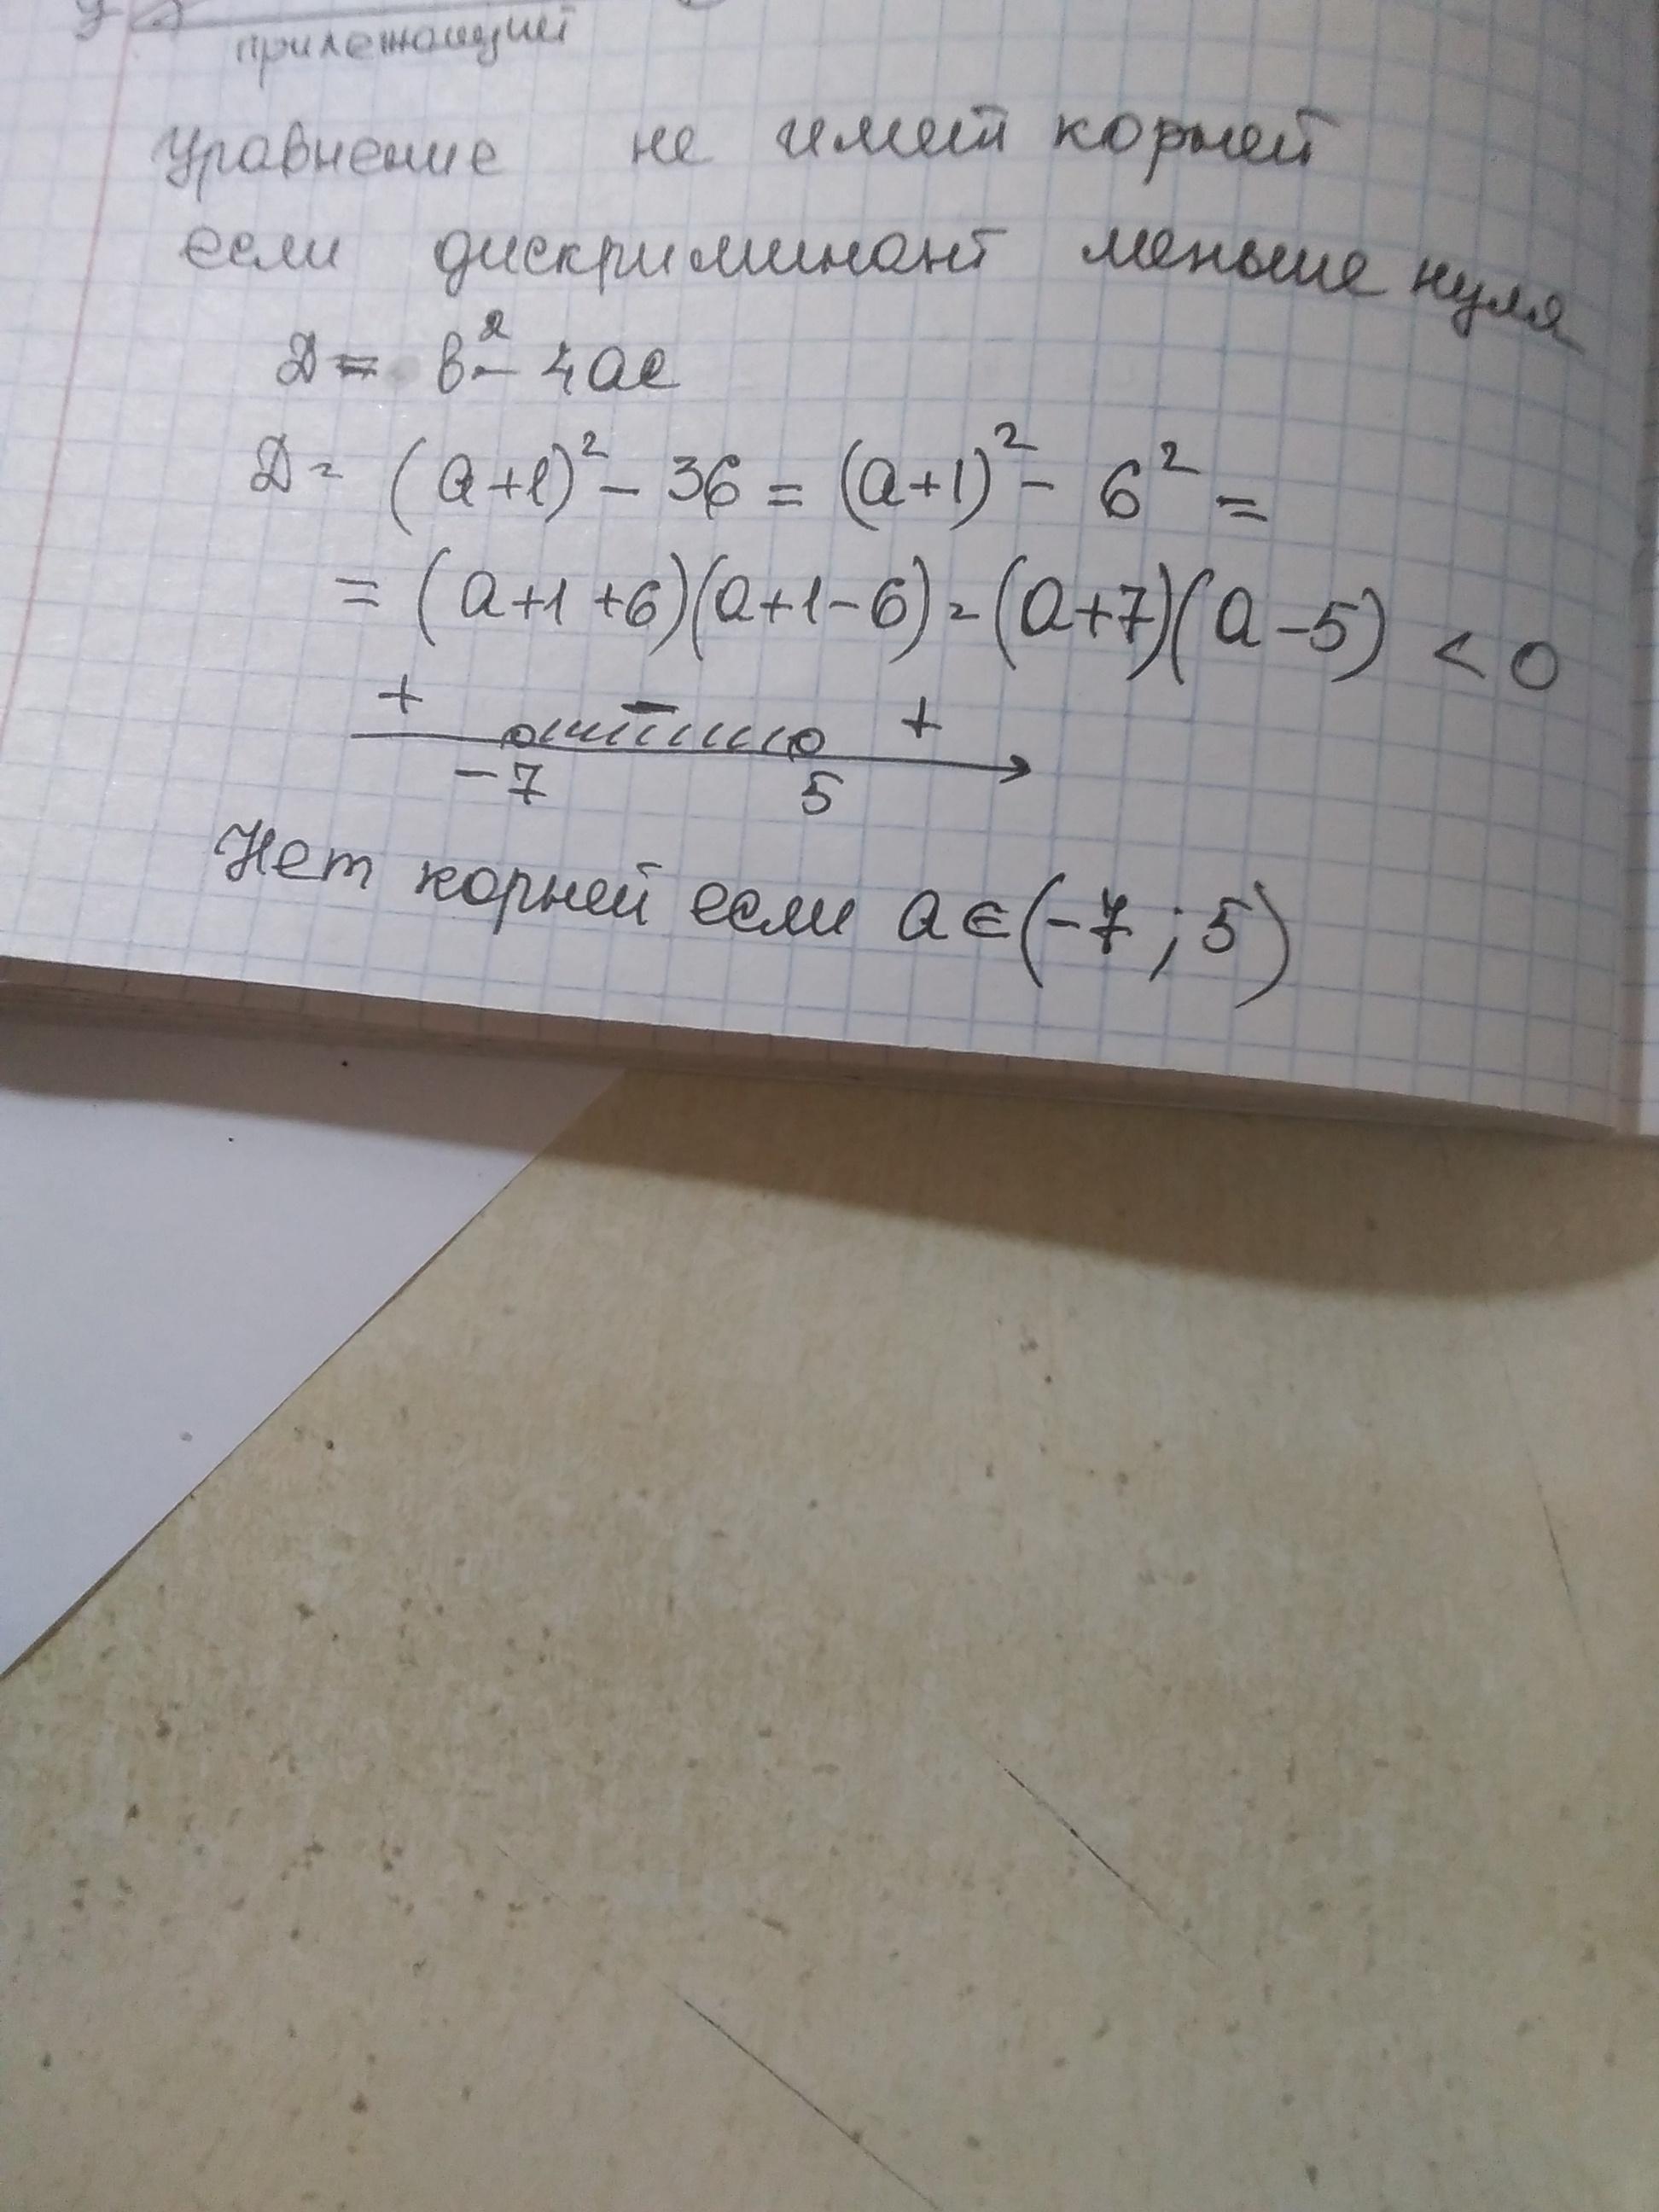 прилежащий
Уравнение не имеет корней
если дискриминант меньше нуля
D = b² - 4ac
D = (a+1)² - 36 = (a+1)² - 6² =
= (a+1+6)(a+1-6) = (a+7)(a-5) < 0
+ - +
-7 5
Нет корней если a ∈ (-7; 5)